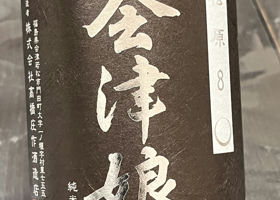 原8
会津娘
純
福島県会津若松市門田町大字一ノ堰字村東七五五
株式会社高橋庄作酒造店